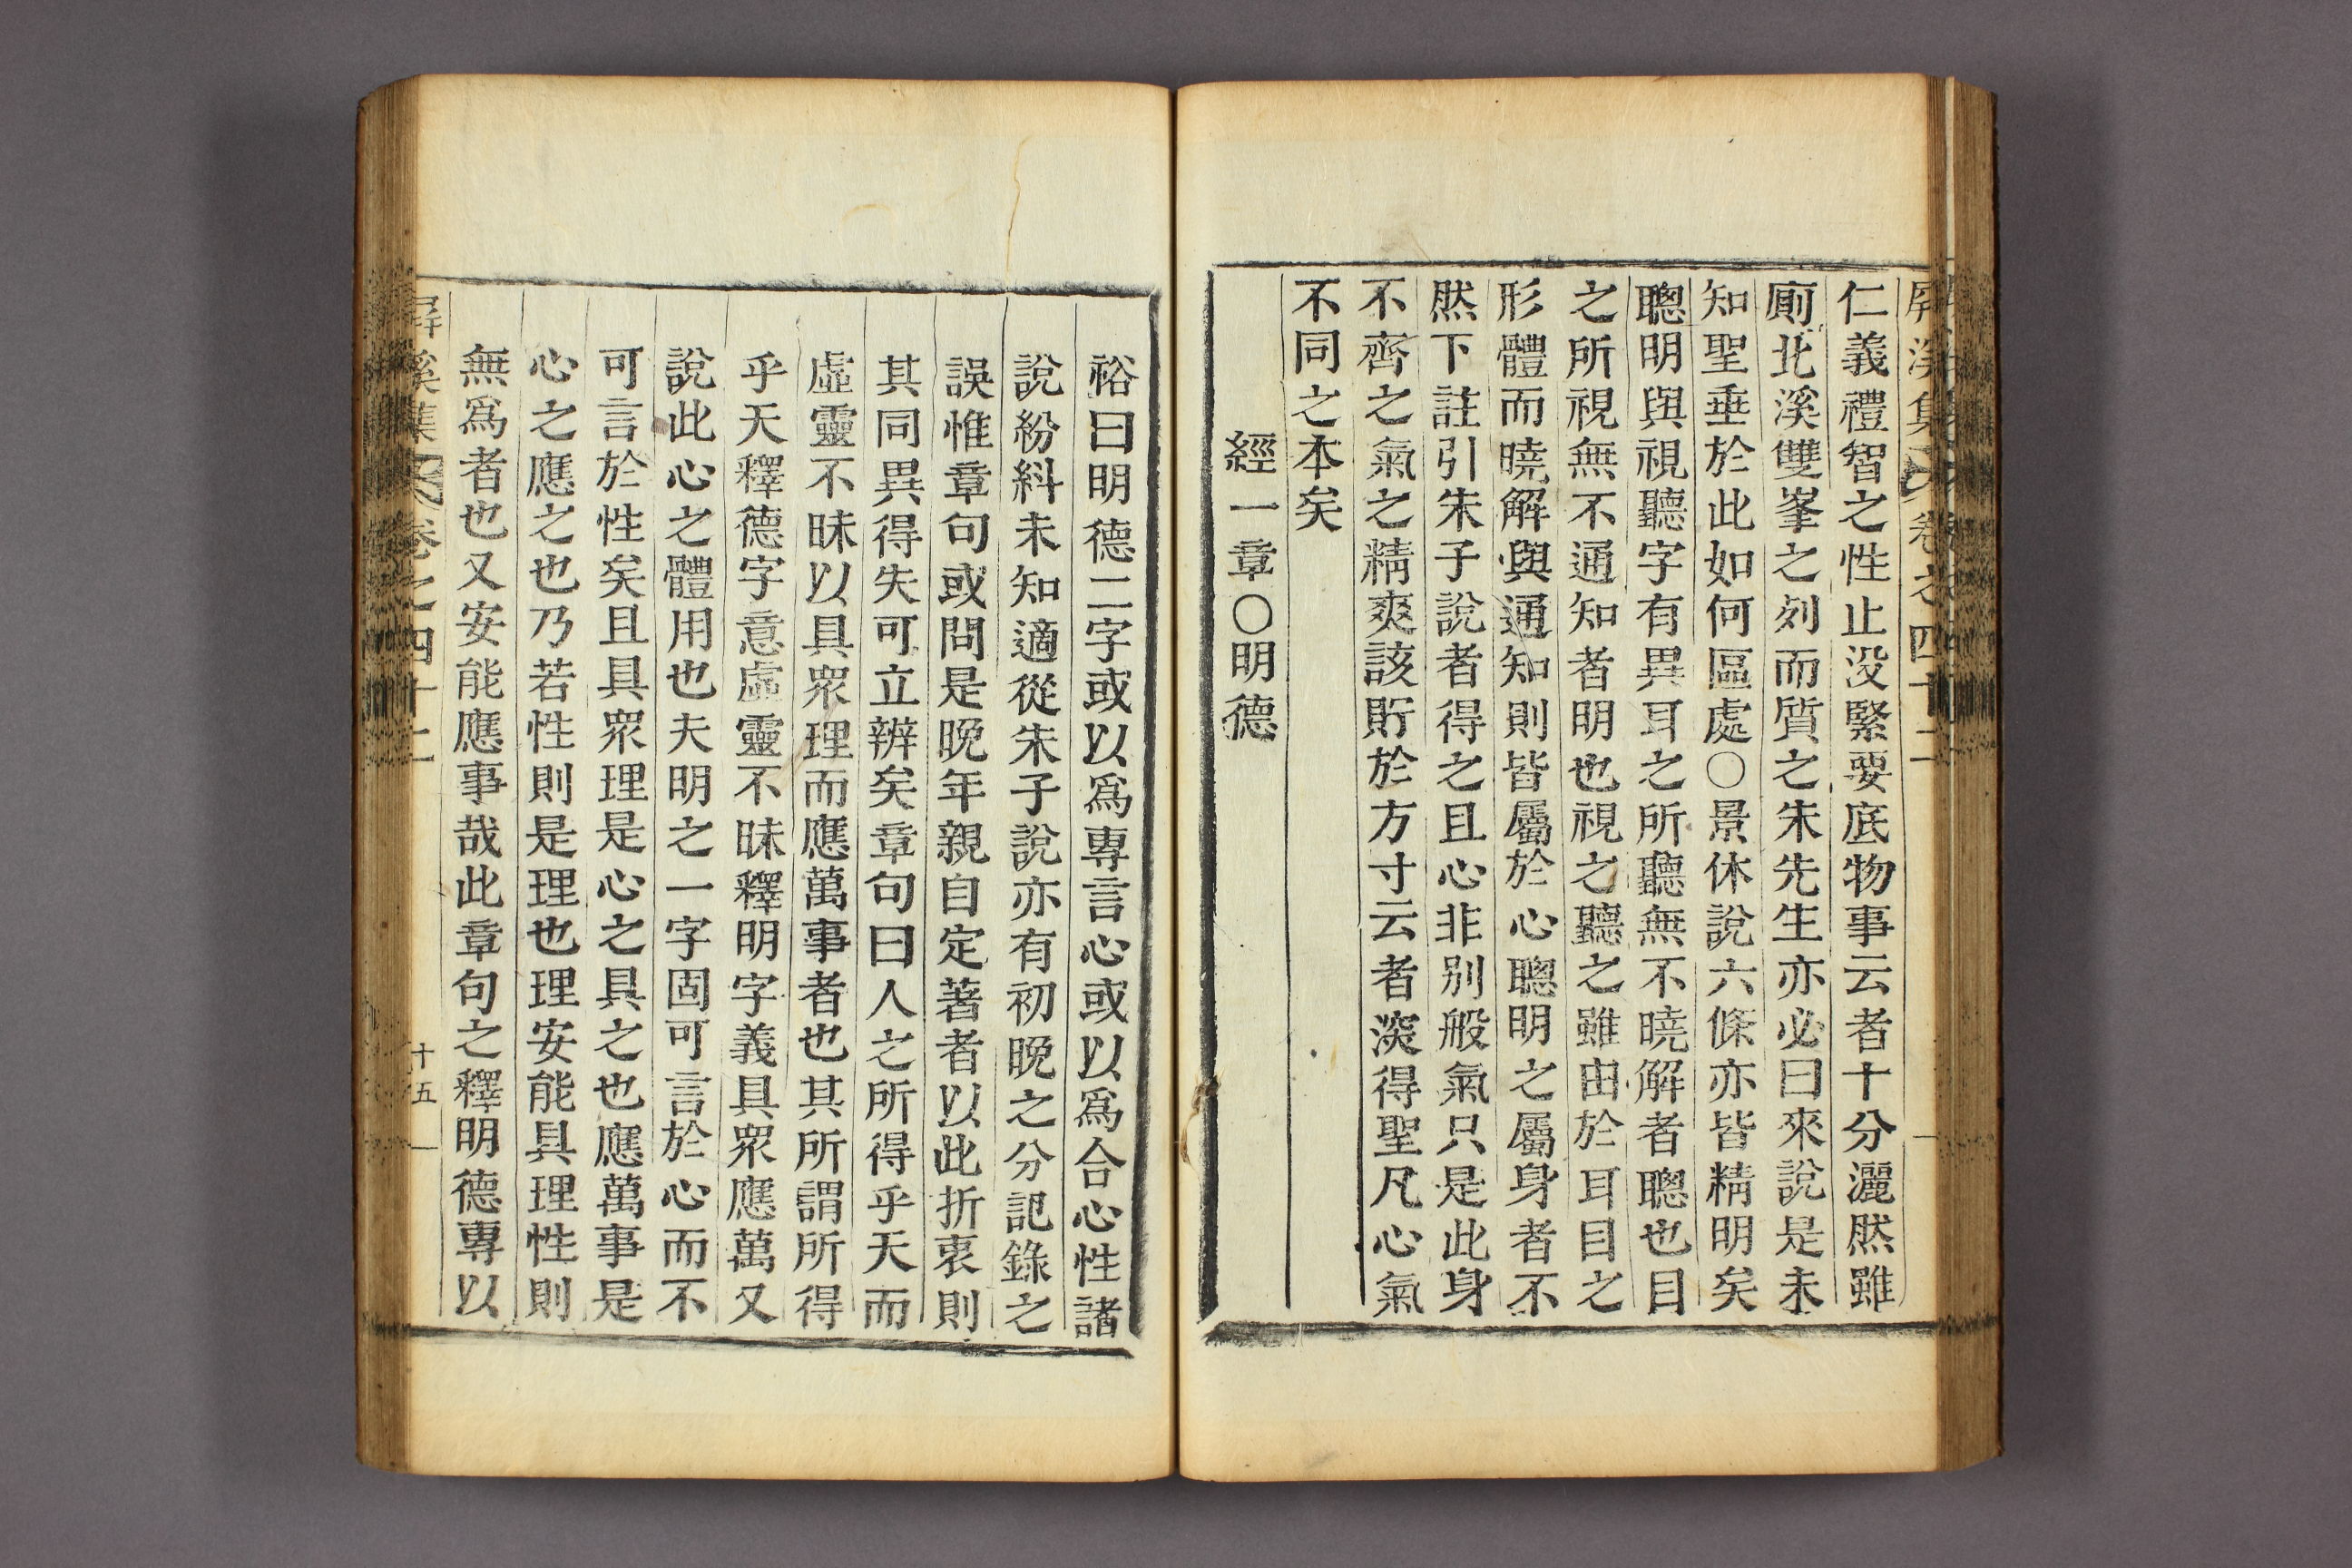 屛溪集 卷之四十二
仁義禮智之性止没緊要底物事云者十分灑然雖
廁北溪雙峯之列而質之朱先生亦必曰來說是未
知聖垂於此如何區處〇景休說六條亦皆精明矣
聰明與視聽字有異耳之所聽無不曉解者聰也目
之所視無不通知者明也視之聽之雖由於耳目之
形體而曉解與通知則皆屬於心聰明之屬身者不
然下註引朱子說者得之且心非别般氣只是此身
不齊之氣之精爽該貯於方寸云者深得聖凡心氣
不同之本矣
經一章〇明德
裕曰明德二字或以爲專言心或以爲合心性諸
說紛糾未知適從朱子說亦有初晩之分記錄之
誤惟章句或問是晩年親自定著者以此折衷則
其同異得失可立辨矣章句曰人之所得乎天而
虛靈不昧以具衆理而應萬事者也其所謂所得
乎天釋德字意虛靈不昧釋明字義具衆應萬又
說此心之體用也夫明之一字固可言於心而不
可言於性矣且具衆理是心之具之也應萬事是
心之應之也乃若性則是理也理安能具理性則
無爲者也又安能應事哉此章句之釋明德專以
屛溪集 卷之四十二 十五